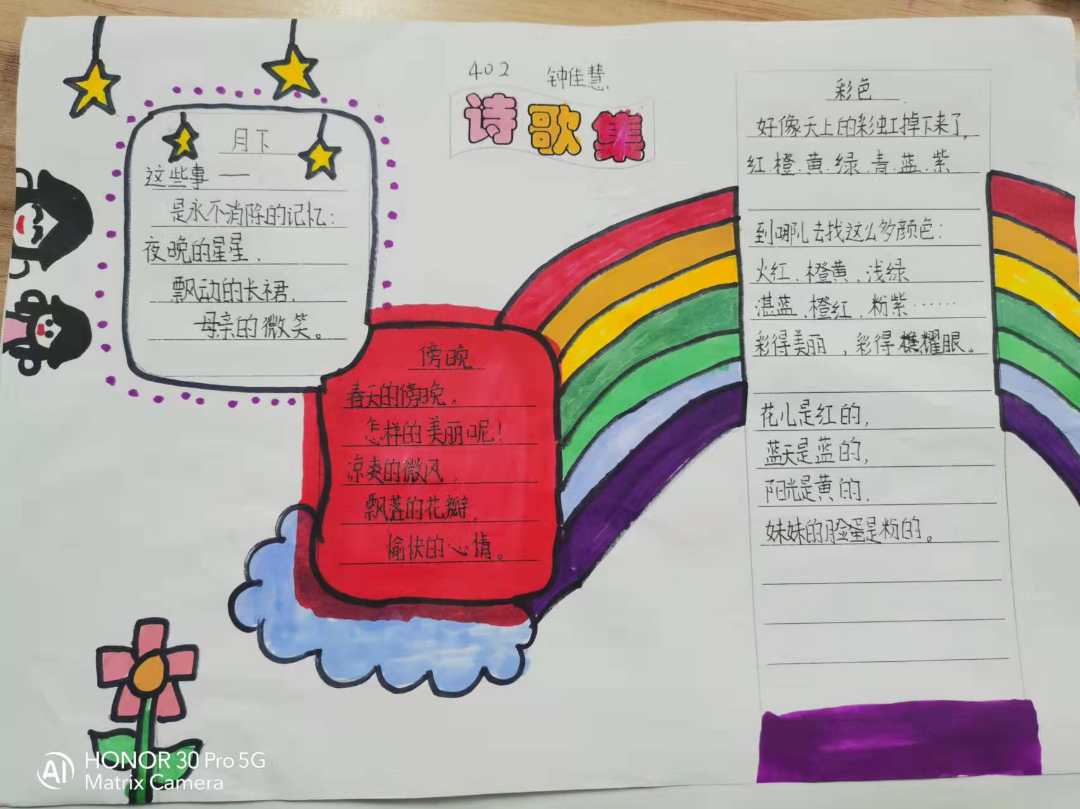 402 钟佳慧
诗歌集
月下
这些事——
是永不消除的记忆:
夜晚的星星,
飘动的长裙,
母亲的微笑。
傍晚
春天的傍晚,
怎样的美丽呢!
凉爽的微风,
飘落的花瓣,
愉快的心情。
彩色
好像天上的彩虹掉下来了,
红、橙、黄、绿、青、蓝、紫
到哪儿去找这么多颜色:
火红、橙黄、浅绿
湛蓝、橙红、粉紫……
彩得美丽,彩得耀眼。
花儿是红的,
蓝天是蓝的,
阳光是黄的,
妹妹的脸蛋是粉的。
HONOR 30 Pro 5G
Matrix Camera
AI